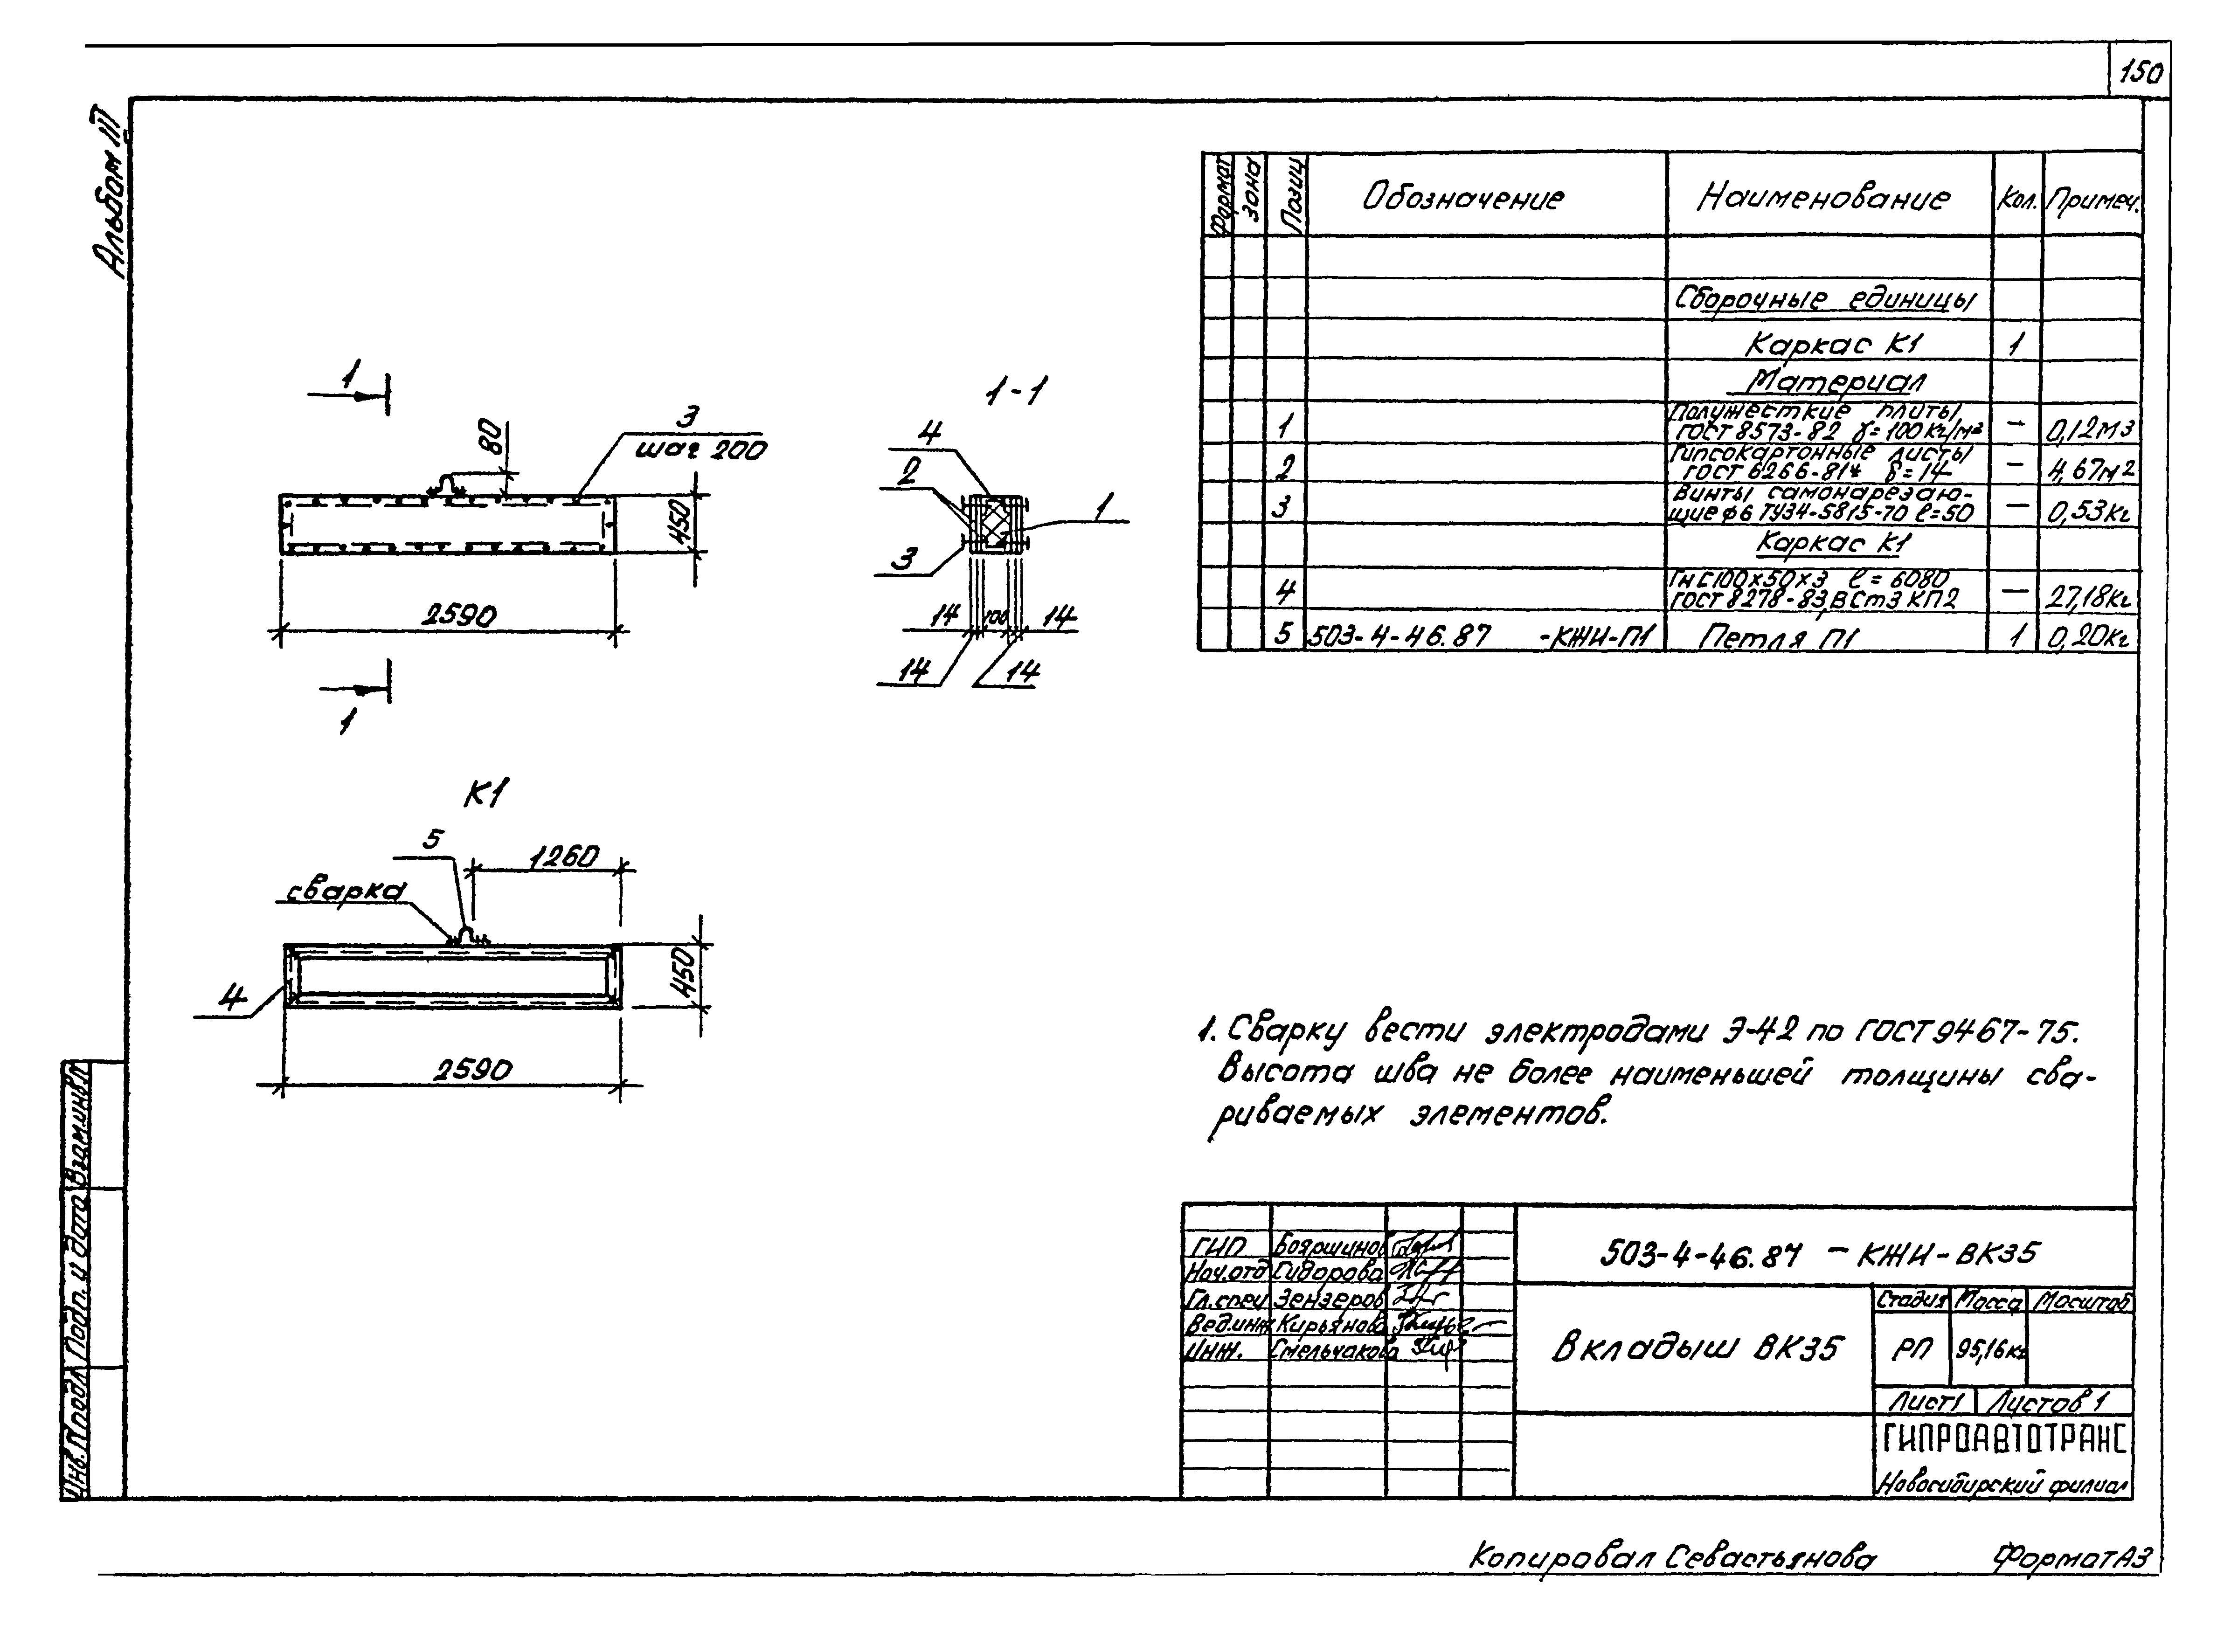 150
Альбом III
Формат Зона Позиц Обозначение Наименование Кол. Примеч.
Сборочные единицы
Каркас К1 1
Материал
1 Полужесткие плиты ГОСТ 8573-82 γ=100кг/м³ — 0,12м3
2 Гипсокартонные листы ГОСТ 6266-81* δ=14 — 4,67м2
3 Винты самонарезаю-
щие ф6 ТУ34-5815-70 ℓ=50 — 0,53кг
Каркас К1
4 Гн С100х50х3 ℓ=6080
ГОСТ 8278-83, ВСт3 КП2 — 27,18кг
5 503-4-46.87 -КЖИ-П1 Петля П1 1 0,20кг
1
80
3
шаг 200
450
2590
1
1-1
4
2
1
3
14 100 14
14 14
К1
5
1260
сварка
450
4
2590
1. Сварку вести электродами Э-42 по ГОСТ 9467-75.
Высота шва не более наименьшей толщины сва-
риваемых элементов.
Взам.инв.П
Подп. и дата
Инв.П подл
ГИП Бояршинов
Нач.отд Сидорова
Гл.спец Зензеров
Вед.инж Кирьянова
Инж. Смельчакова
503-4-46.87 - КЖИ-ВК35
Вкладыш ВК35
Стадия Масса Масштаб
РП 95,16кг
Лист 1 Листов 1
ГИПРОАВТОТРАНС
Новосибирский филиал
Копировал Севастьянова Формат А3